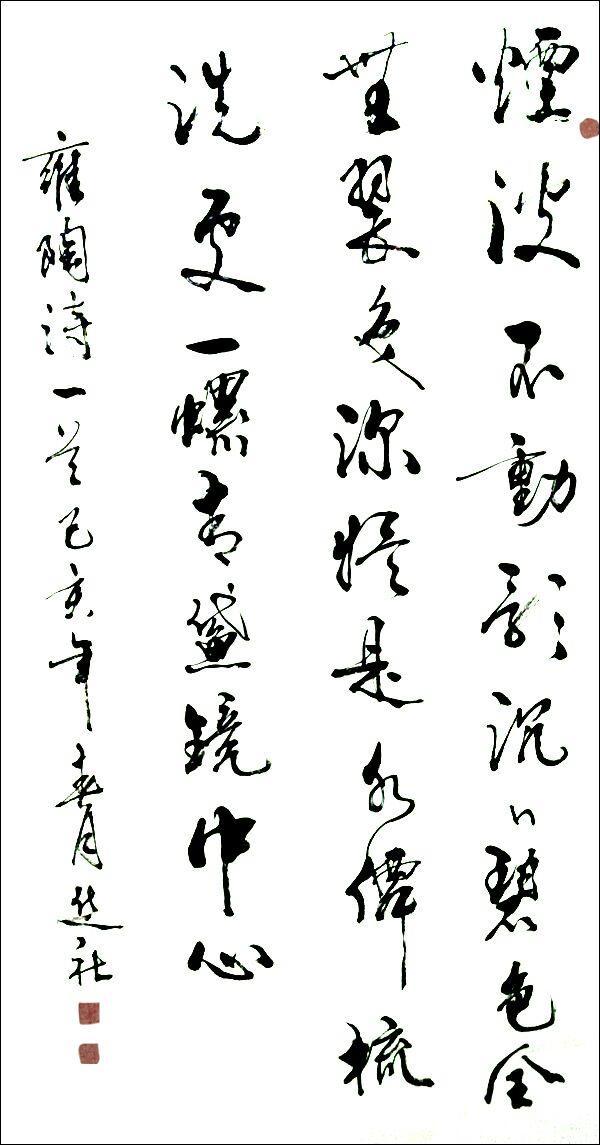 煙波不動影沉〻碧色全
無翠色深疑是水僊梳
洗處一螺青黛鏡中心
雍陶詩一首己亥年春月